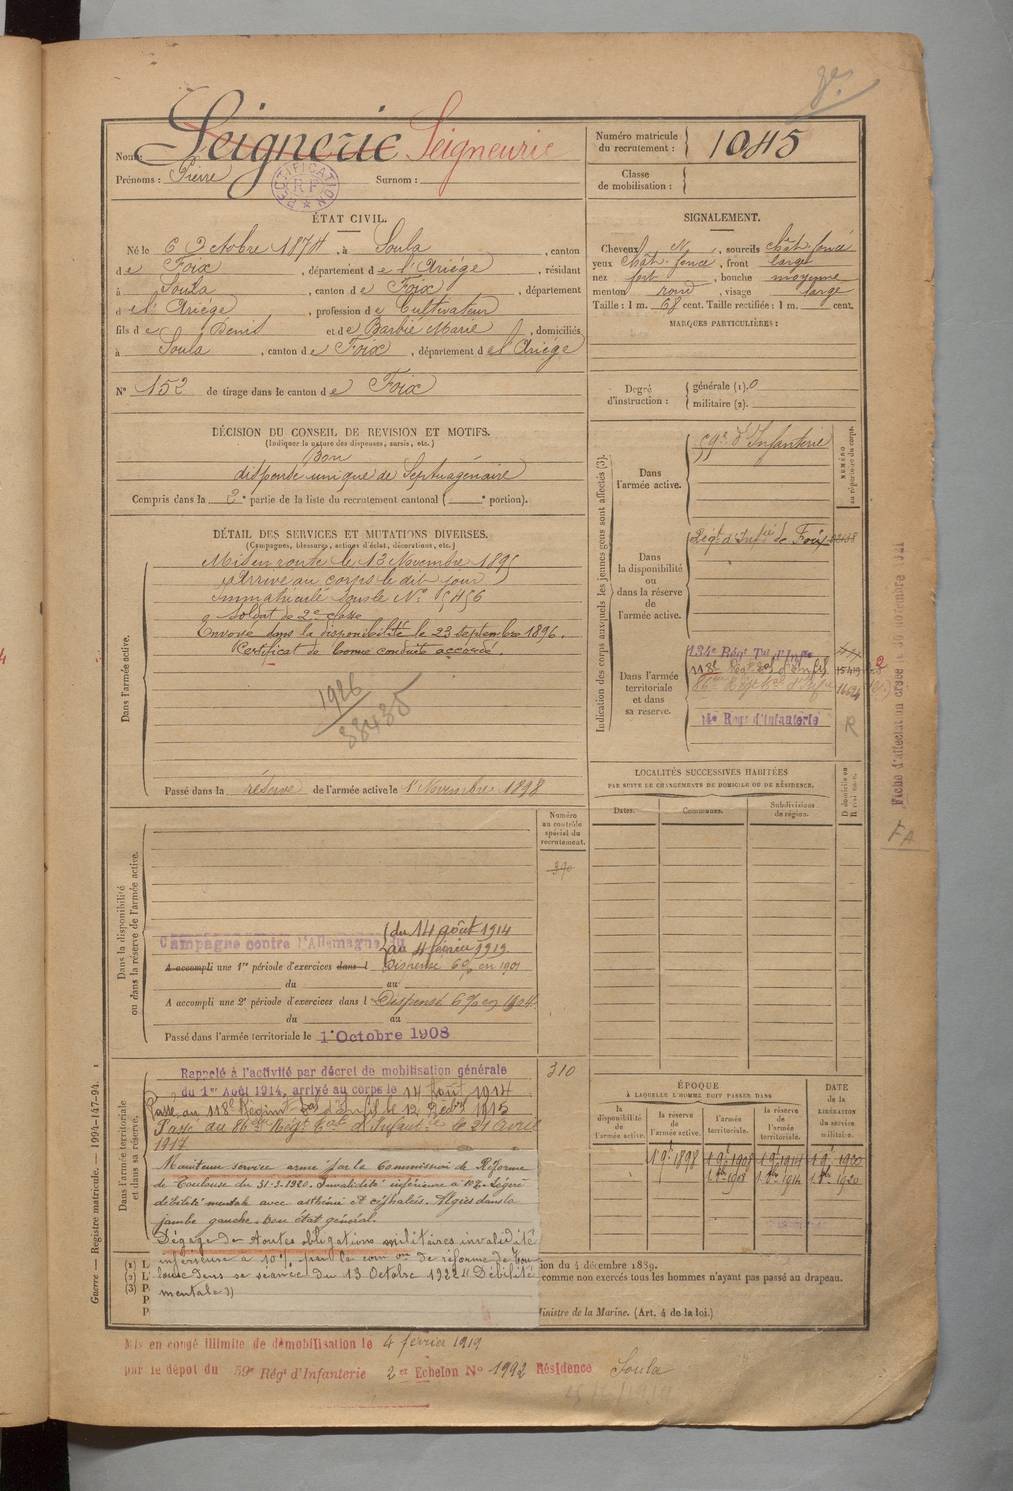 Nom: Seignerie Seigneurie
Prénoms : Pierre Surnom :
RECTIFICATION R F
Numéro matricule du recrutement : 1045
Classe de mobilisation :
ÉTAT CIVIL.
Né le 6 Octobre 1874, à Soula, canton
de Foix, département de l'Ariége, résidant
à Soula, canton de Foix, département
de l'Ariége, profession de Cultivateur
fils de Denis et de Barbié Marie, domiciliés
à Soula, canton de Foix, département de l'Ariége
N° 152 de tirage dans le canton de Foix
SIGNALEMENT.
Cheveux N, sourcils chât. foncé
yeux chât. foncé, front large
nez fort, bouche moyenne
menton rond, visage large
Taille : 1 m. 68 cent. Taille rectifiée : 1 m. cent.
MARQUES PARTICULIÈRES :
Degré d'instruction : générale (1). 0
militaire (2).
DÉCISION DU CONSEIL DE REVISION ET MOTIFS.
(Indiquer la nature des dispenses, sursis, etc.)
Bon
dispensé unique de Septuagénaire
Compris dans la 2e partie de la liste du recrutement cantonal ( e portion).
DÉTAIL DES SERVICES ET MUTATIONS DIVERSES.
(Campagnes, blessures, actions d'éclat, décorations, etc.)
Dans l'armée active.
Mis en route le 13 Novembre 1895
Arrivé au corps le dit jour
Immatriculé sous le N° 5456
Soldat de 2e classe
Envoyé dans la disponibilité le 23 septembre 1896.
Certificat de bonne conduite accordé.
1926
38435
Passé dans la réserve de l'armée active le 1er Novembre 1898
Indication des corps auxquels les jeunes gens sont affectés (3).
NUMÉRO au répertoire du corps.
Dans l'armée active.
59e d'Infanterie
Dans la disponibilité ou dans la réserve de l'armée active.
Régt d'Infie de Foix
Dans l'armée territoriale et dans sa réserve.
134e Régt Tal d'Infie
118e Regt tal d'Inf. 15419
86me Régt tal d'Infie
14e Regt d'Infanterie R
Fiche d'affectation créée le 30 novembre 1921
FA
LOCALITÉS SUCCESSIVES HABITÉES
PAR SUITE DE CHANGEMENTS DE DOMICILE OU DE RÉSIDENCE.
Dates. Communes. Subdivisions de région. D. domicile ou R. résidence.
Dans la disponibilité ou dans la réserve de l'armée active.
Numéro au contrôle spécial du recrutement.
390
Campagne contre l'Allemagne du
du 14 août 1914
au 4 février 1919
A accompli une 1re période d'exercices dans l Dispensé 6% en 1901
du au
A accompli une 2e période d'exercices dans l Dispensé 6% en 1904
du au
Passé dans l'armée territoriale le 1er Octobre 1908
Dans l'armée territoriale et dans sa réserve.
310
Rappelé à l'activité par décret de mobilisation générale
du 1er Août 1914, arrivé au corps le 14 Août 1914
Passé au 118e Régimt tal d'Inf le 12 Dbre 1915
Passé au 86ème Régt tal d'Infantie le 21 Avril
1917
Maintenu service armé par la Commission de Réforme
de Toulouse du 31-3-1920. Invalidité inférieure à 10%. Légère
débilité mentale avec asthénie et céphalées. Algies dans la
jambe gauche. bon état général.
Dégagé de toutes obligations militaires invalidité
inférieure à 10% par la com on de réforme de Tou
louse dans sa séance du 13 Octobre 1922 "Débilité
mentale"
ÉPOQUE
À LAQUELLE L'HOMME DOIT PASSER DANS
DATE de la LIBÉRATION du service militaire.
la disponibilité de l'armée active. la réserve de l'armée active. l'armée territoriale. la réserve de l'armée territoriale.
1 9e 1898 1 9e 1908 1 9e 1914 1 9e 1920
1 8bre 1908 1 8bre 1914 1 8bre 1920
(1) L
(2) L'
(3) P
P
P
ion du 4 décembre 1889.
comme non exercés tous les hommes n'ayant pas passé au drapeau.
Ministre de la Marine. (Art. 4 de la loi.)
Guerre — Registre matricule. — 1994-147-94. 1
Mis en congé illimité de démobilisation le 4 février 1919
par le dépôt du 59e Régt d'Infanterie 2er Echelon N° 1992 Résidence Soula